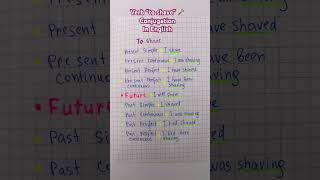 Verb "to shave" 🪒
Conjugation
In English
To Shave
Present Simple I shave
Present Continuous I am shaving
Present Perfect I have shaved
Present Perfect I have been
continuous shaving
Future I will shave
Past Simple I shaved
Past Continuous I was shaving
Past Perfect I had shaved
Past Perfect I had been
continuous shaving